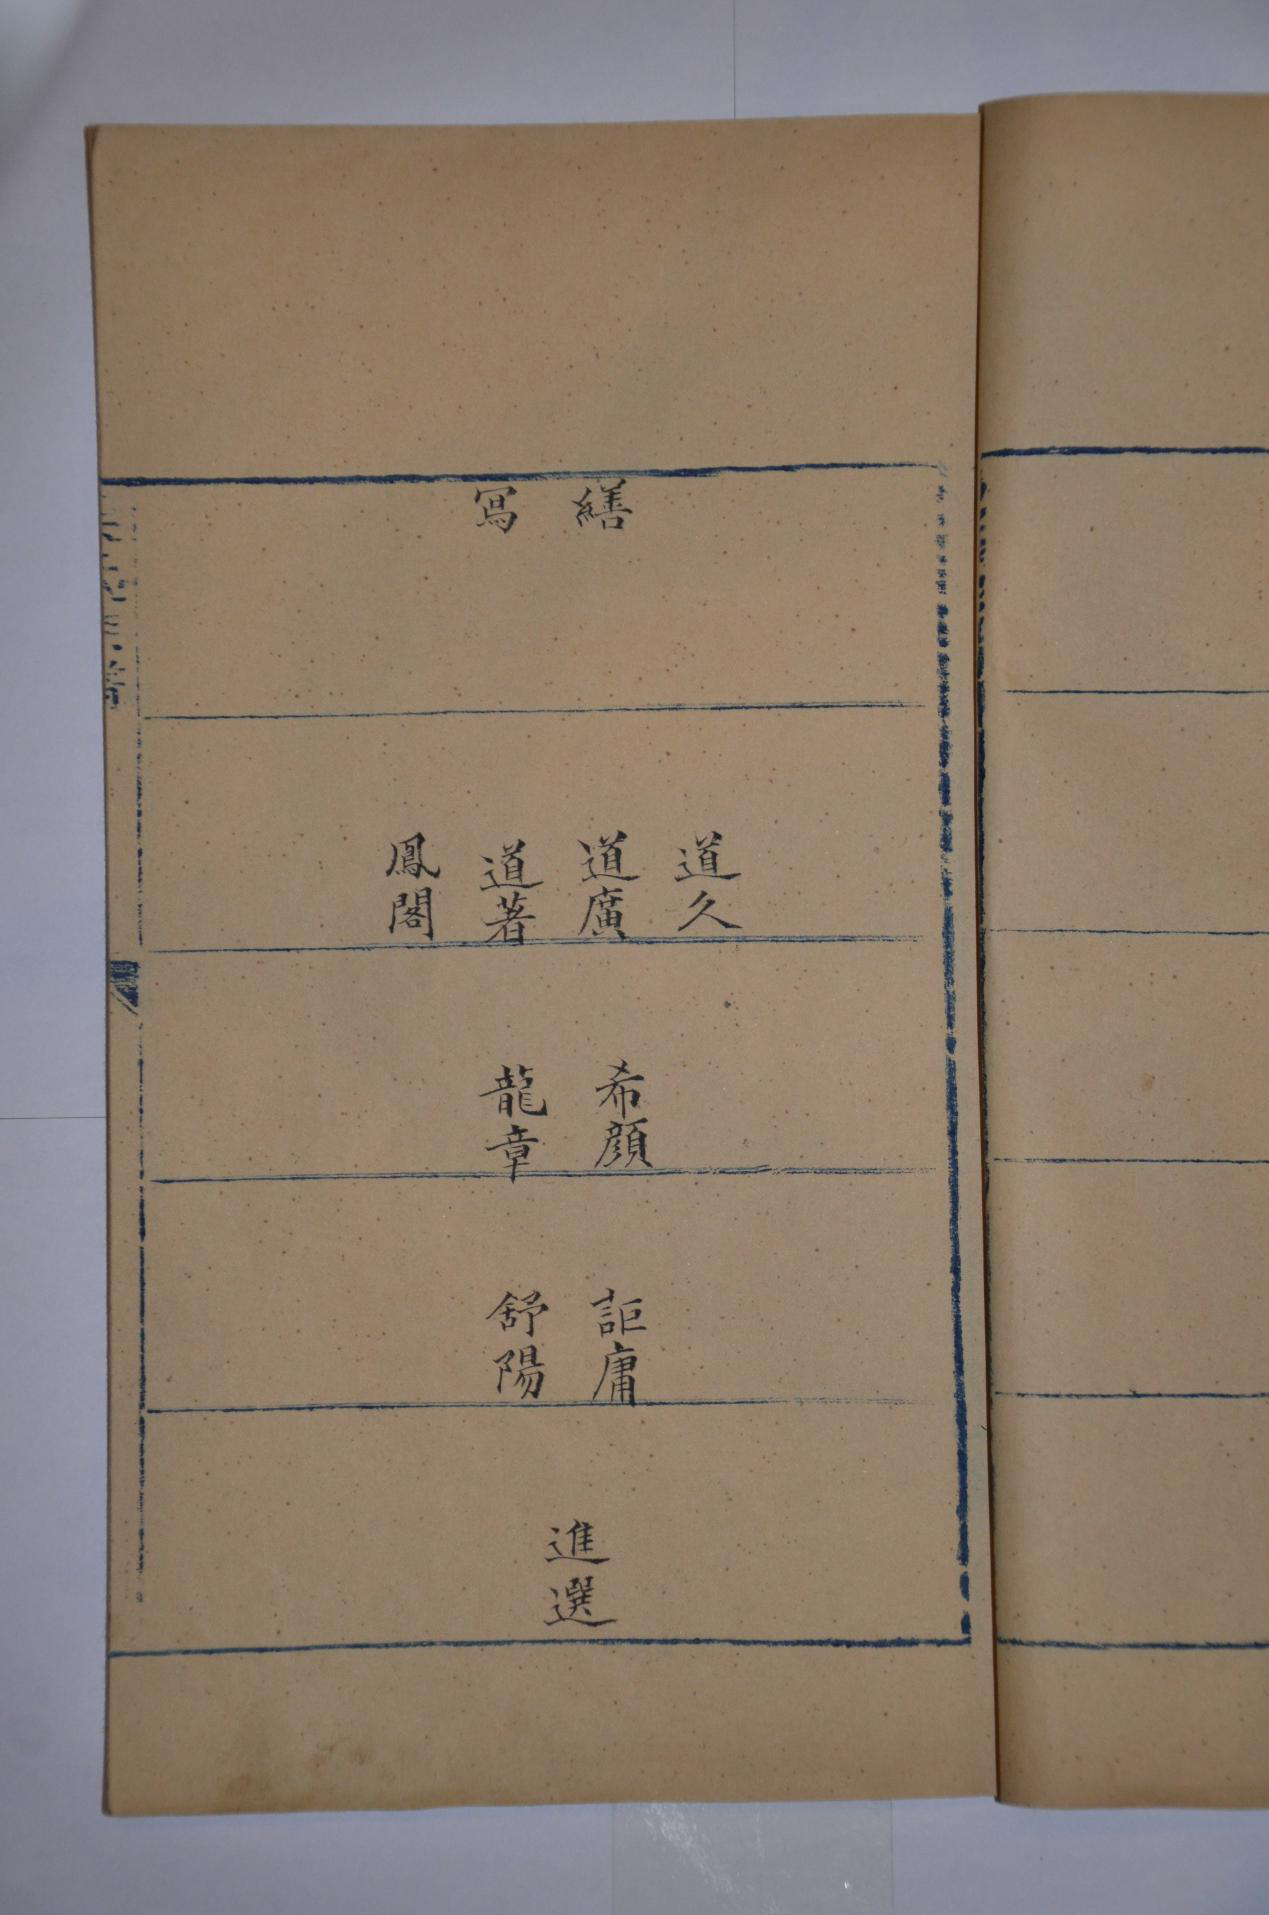 繕寫
道久
道廣
道著
鳳閣
希顏
龍章
詎庸
舒陽
進選